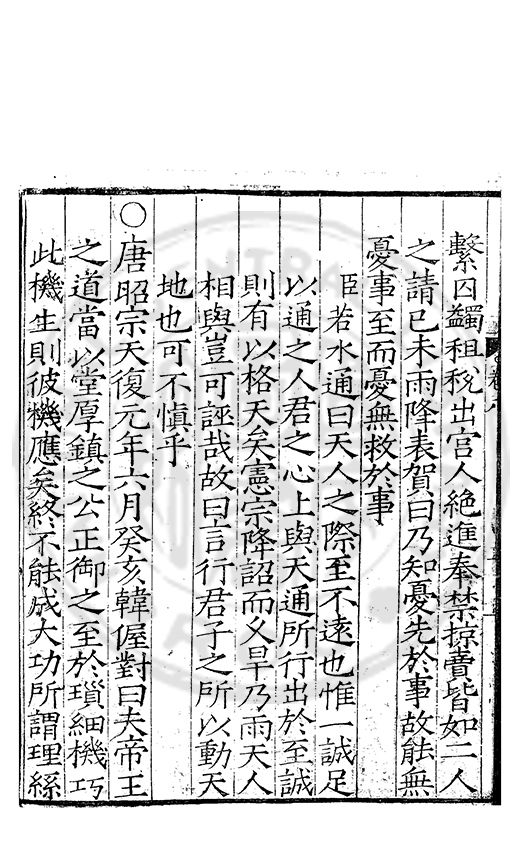 繫囚蠲租稅出宫人絶進奉禁掠賣皆如二人
之請已未雨降表賀曰乃知憂先於事故能無
憂事至而憂無救於事
臣若水通曰天人之際至不遠也惟一誠足
以通之人君之心上與天通所行出於至誠
則有以格天矣憲宗降詔而久旱乃雨天人
相與豈可誣哉故曰言行君子之所以動天
地也可不慎乎
○唐昭宗天復元年六月癸亥韓偓對曰夫帝王
之道當以堂厚鎮之公正御之至於瑣細機巧
此機生則彼機應矣終不能成大功所謂理絲